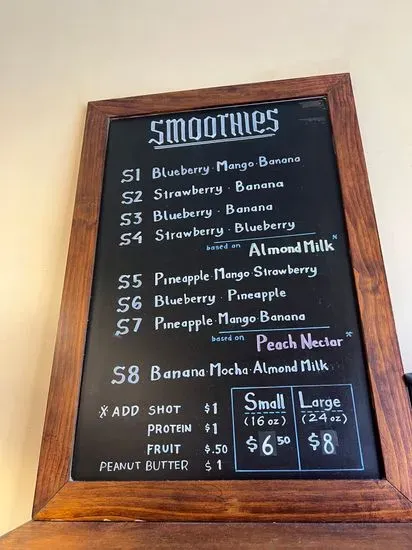 SMOOTHIES
S1 Blueberry · Mango · Banana
S2 Strawberry · Banana
S3 Blueberry · Banana
S4 Strawberry · Blueberry
based on Almond Milk *
S5 Pineapple · Mango · Strawberry
S6 Blueberry · Pineapple
S7 Pineapple · Mango · Banana
based on Peach Nectar *
S8 Banana · Mocha · Almond Milk
* ADD SHOT $1
PROTEIN $1
FRUIT $.50
PEANUT BUTTER $1
Small Large
(16 oz) (24 oz)
$6.50 $8